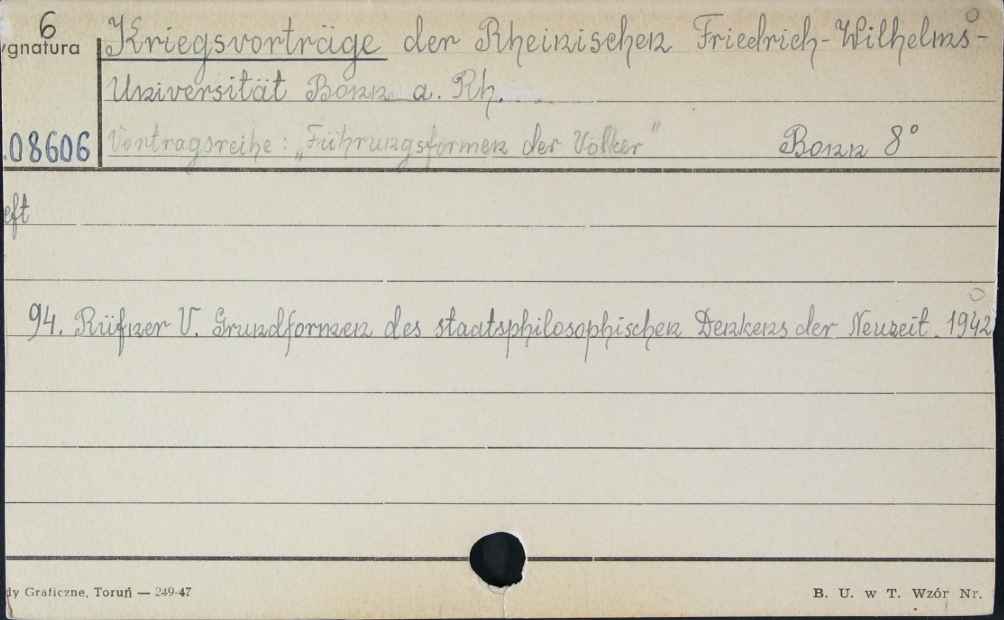 6
ygnatura
Kriegsvorträge der Rheinischen Friedrich-Wilhelms-
Universität Bonn a. Rh.
.08606
Vortragsreihe: „Führungsformen der Völker" Bonn 8°
eft
94. Rüfner V. Grundformen des staatsphilosophischen Denkens der Neuzeit. 1942
dy Graficzne, Toruń — 249-47
B. U. w T. Wzór Nr.